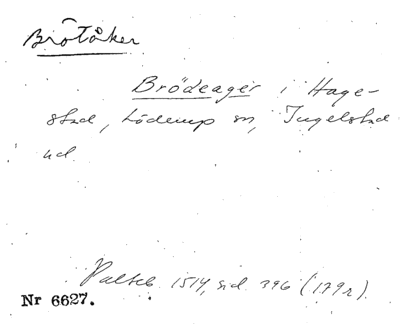 Brötåker
Brödeager i Hage-
stad, Löderup sn, Ingelstad
hd
Palteb. 1514, sid. 396 (179r).
Nr 6627.